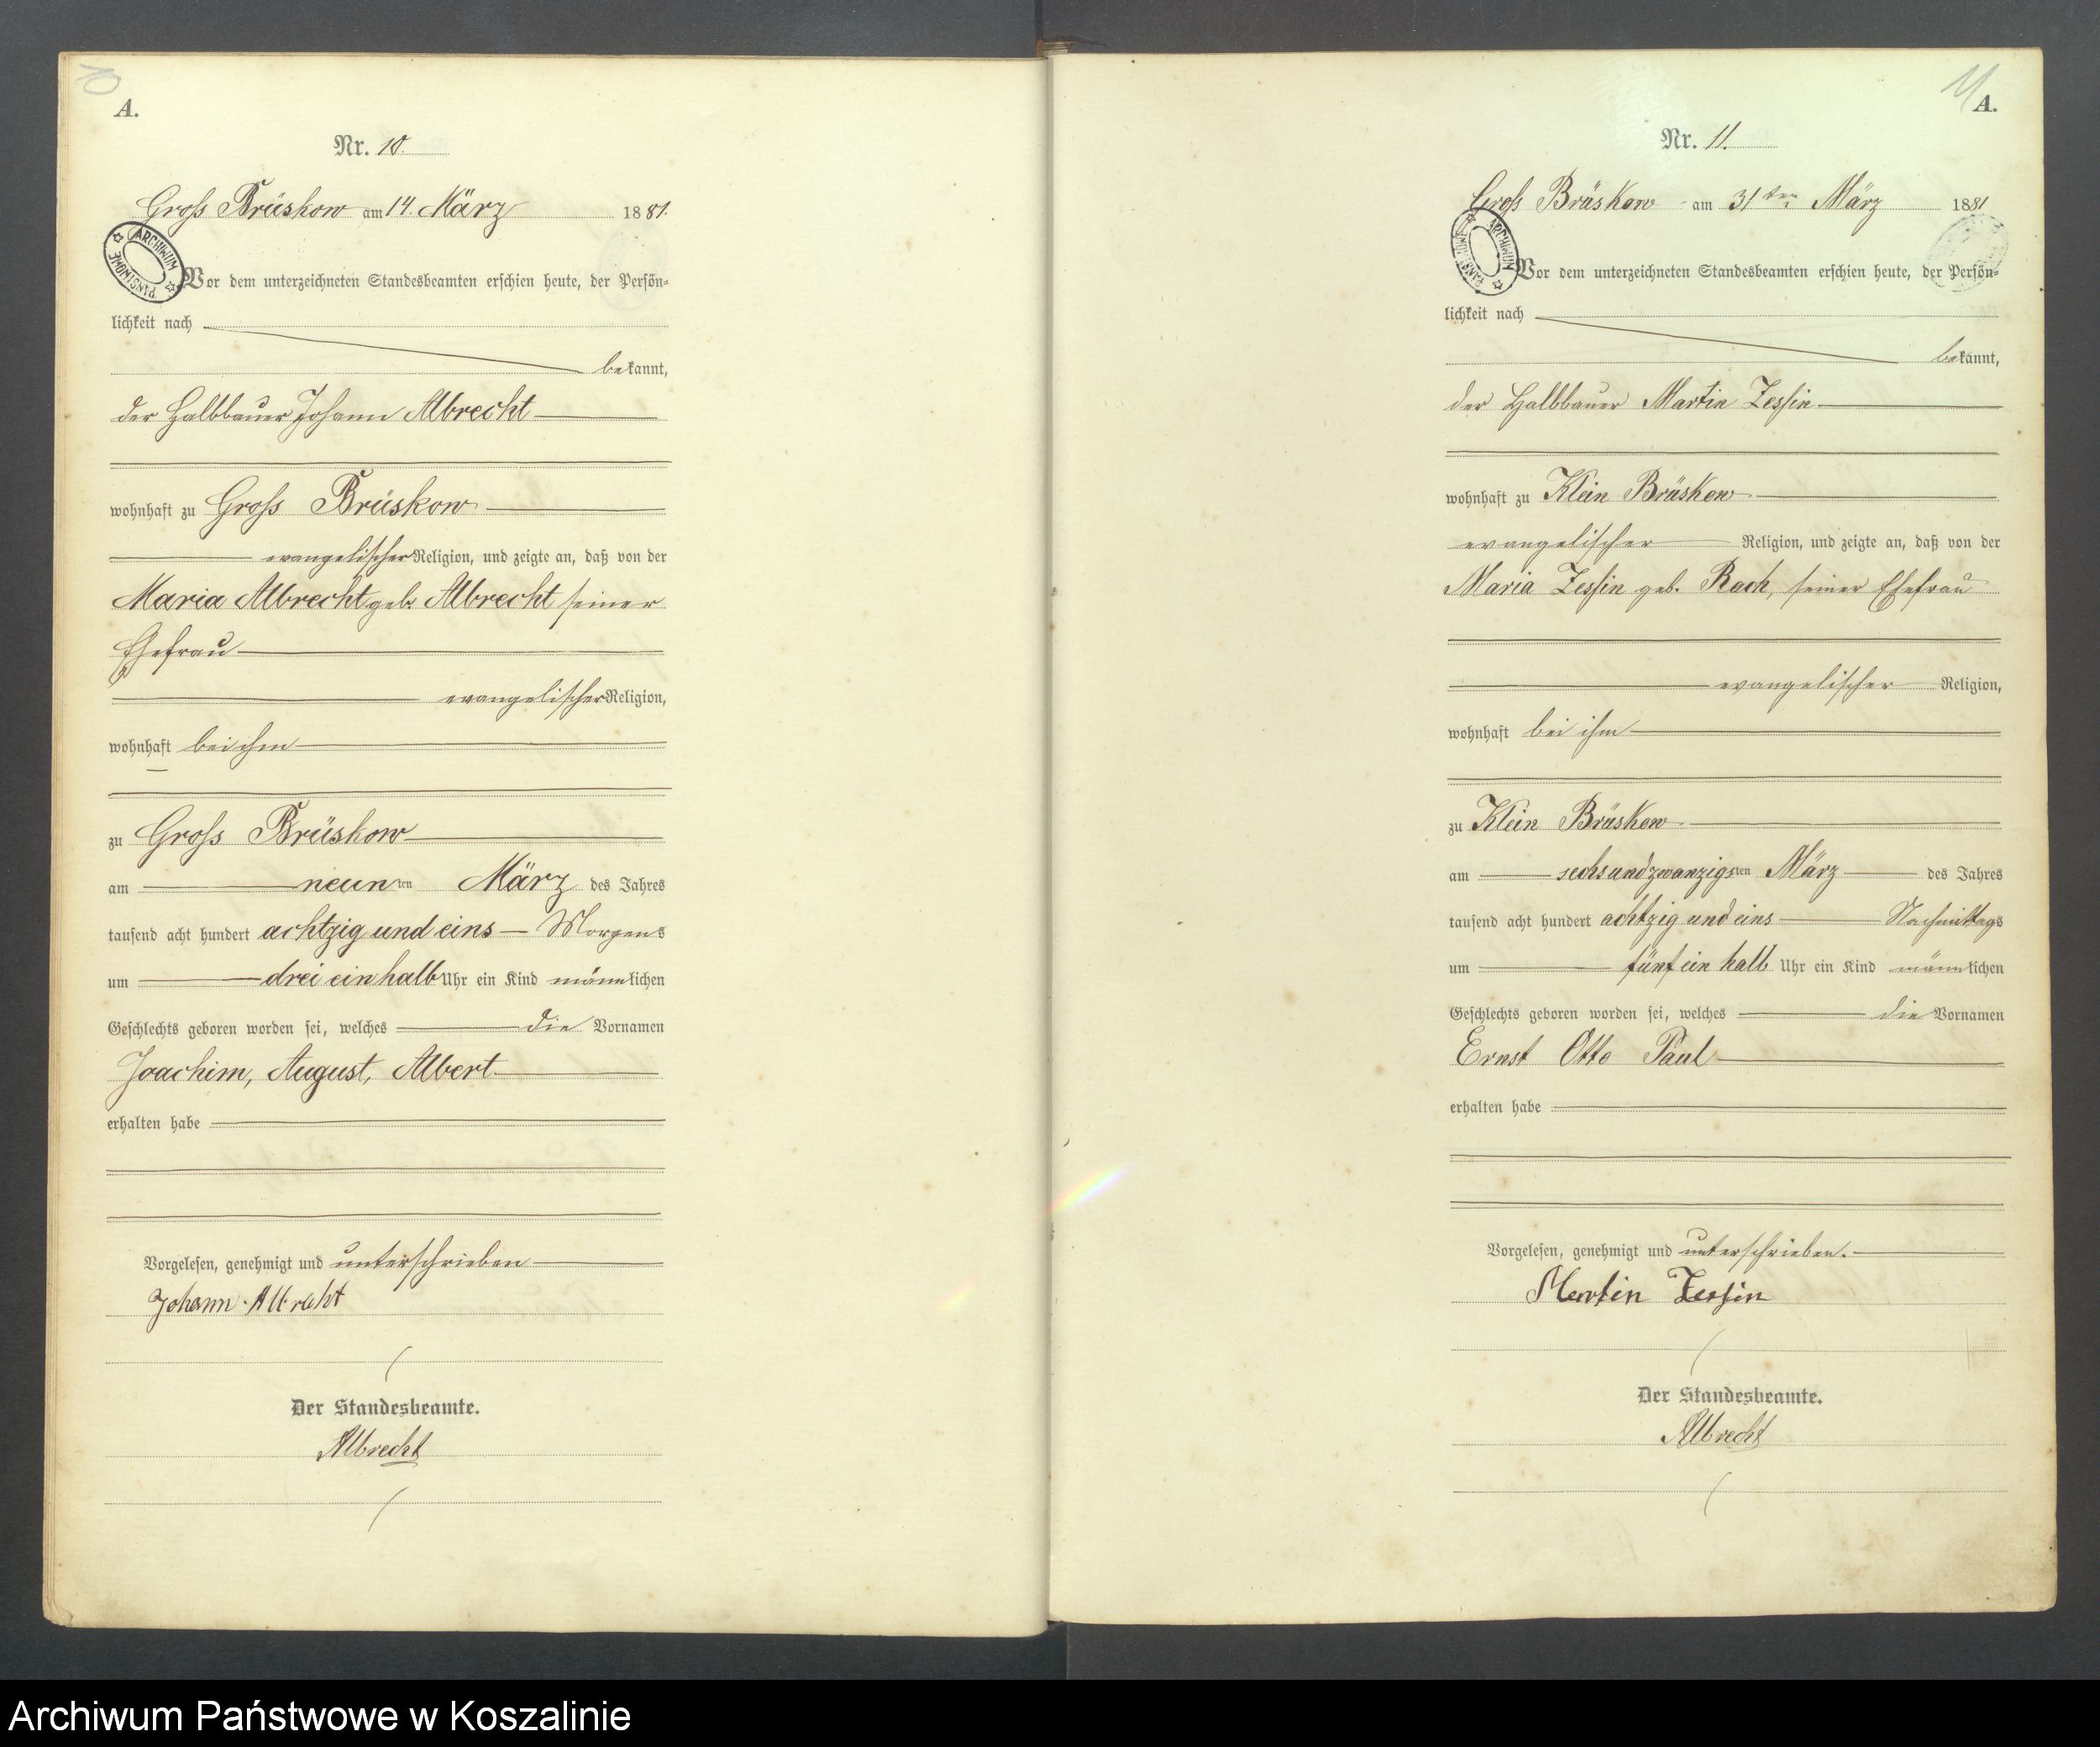 10
A.
Nr. 10.
Gross Brüskow am 14. März 1881.
ARCHIWUM PAŃSTWOWE
Vor dem unterzeichneten Standesbeamten erschien heute, der Persön-
lichkeit nach
bekannt,
der Halbbauer Johann Albrecht
wohnhaft zu Gross Brüskow
evangelischer Religion, und zeigte an, daß von der
Maria Albrecht geb. Albrecht seiner
Ehefrau
evangelischer Religion,
wohnhaft bei ihm
zu Gross Brüskow
am neunten März des Jahres
tausend acht hundert achtzig und eins Morgens
um drei ein halb Uhr ein Kind männlichen
Geschlechts geboren worden sei, welches die Vornamen
Joachim, August, Albert
erhalten habe
Vorgelesen, genehmigt und unterschrieben
Johann Albrecht
Der Standesbeamte.
Albrecht
11
A.
Nr. 11.
Gross Brüskow am 31ten März 1881
ARCHIWUM PAŃSTWOWE
Vor dem unterzeichneten Standesbeamten erschien heute, der Persön-
lichkeit nach
bekannt,
der Halbbauer Martin Zessin
wohnhaft zu Klein Brüskow
evangelischer Religion, und zeigte an, daß von der
Maria Zessin geb. Rach, seiner Ehefrau
evangelischer Religion,
wohnhaft bei ihm
zu Klein Brüskow
am sechsundzwanzigsten März des Jahres
tausend acht hundert achtzig und eins Nachmittags
um fünf ein halb Uhr ein Kind männlichen
Geschlechts geboren worden sei, welches die Vornamen
Ernst Otto Paul
erhalten habe
Vorgelesen, genehmigt und unterschrieben.
Martin Zessin
Der Standesbeamte.
Albrecht
Archiwum Państwowe w Koszalinie